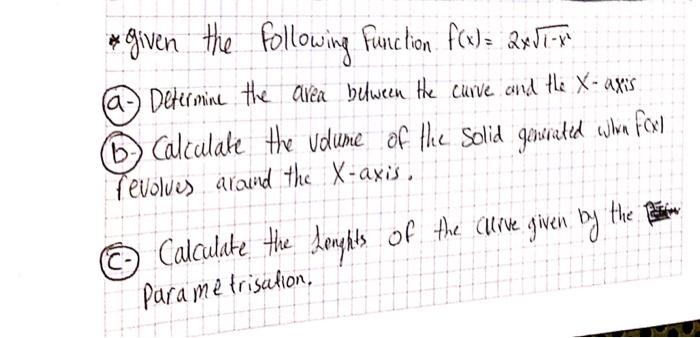 * given the following Function f(x) = 2x√1-x²
a-) Determine the area between the curve and the X-axis
b-) Calculate the volume of the solid generated when f(x)
revolves around the X-axis.
c-) Calculate the lenghts of the curve given by the
parametrisation.